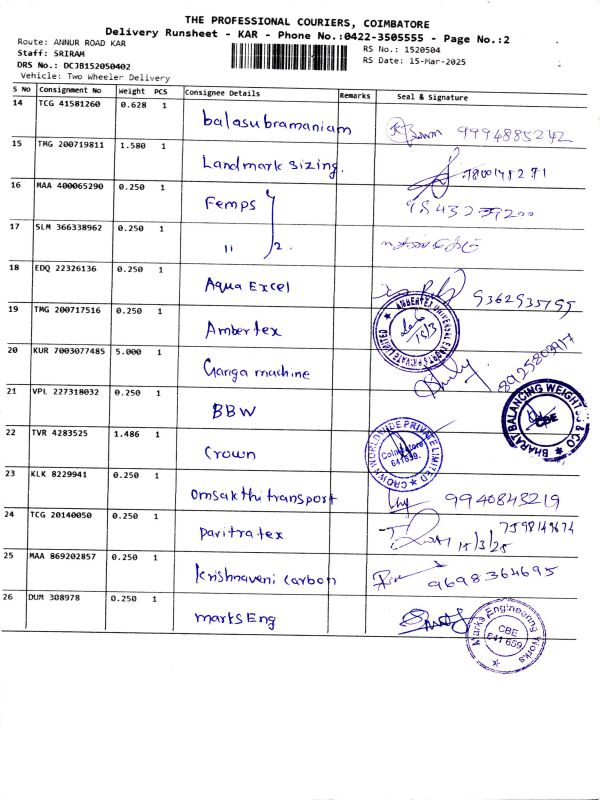 THE PROFESSIONAL COURIERS, COIMBATORE
Delivery Runsheet - KAR - Phone No.:0422-3505555 - Page No.:2
Route: ANNUR ROAD KAR
RS No.: 1520504
Staff: SRIRAM
RS Date: 15-Mar-2025
DRS No.: DCJB152050402
Vehicle: Two Wheeler Delivery
S No Consignment No Weight PCS Consignee Details Remarks Seal & Signature
14 TCG 41581260 0.628 1 balasubramaniam 9994885242
15 TMG 200719811 1.580 1 Landmark sizing.
16 MAA 400065290 0.250 1 Femps
17 SLM 366338962 0.250 1 11 2.
18 EDQ 22326136 0.250 1 Aqua Excel 9362935795
19 TMG 200717516 0.250 1 Ambertex AMBERTEX UNIVERSAL EXPORTS PRIVATE LIMITED 15/3
20 KUR 7003077485 5.000 1 Ganga machine
21 VPL 227318032 0.250 1 BBW BHARAT BALANCING WEIGHT & CO CBE
22 TVR 4283525 1.486 1 Crown CROWN WORLDWIDE PRIVATE LIMITED Coimbatore 641659.
23 KLK 8229941 0.250 1 Omsakthi transport 9940843219
24 TCG 20140050 0.250 1 Pavitra tex 15/3/25 7598149674
25 MAA 869202857 0.250 1 Krishnaveni Carbon 9698364695
26 DUM 308978 0.250 1 marks Eng Marks Engineering Works CBE 641 659